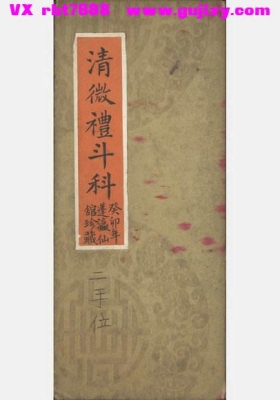 VX rbt7608 www.gujisy.com
清微禮斗科
癸卯年
蓬瀛仙
館珍藏
二手位